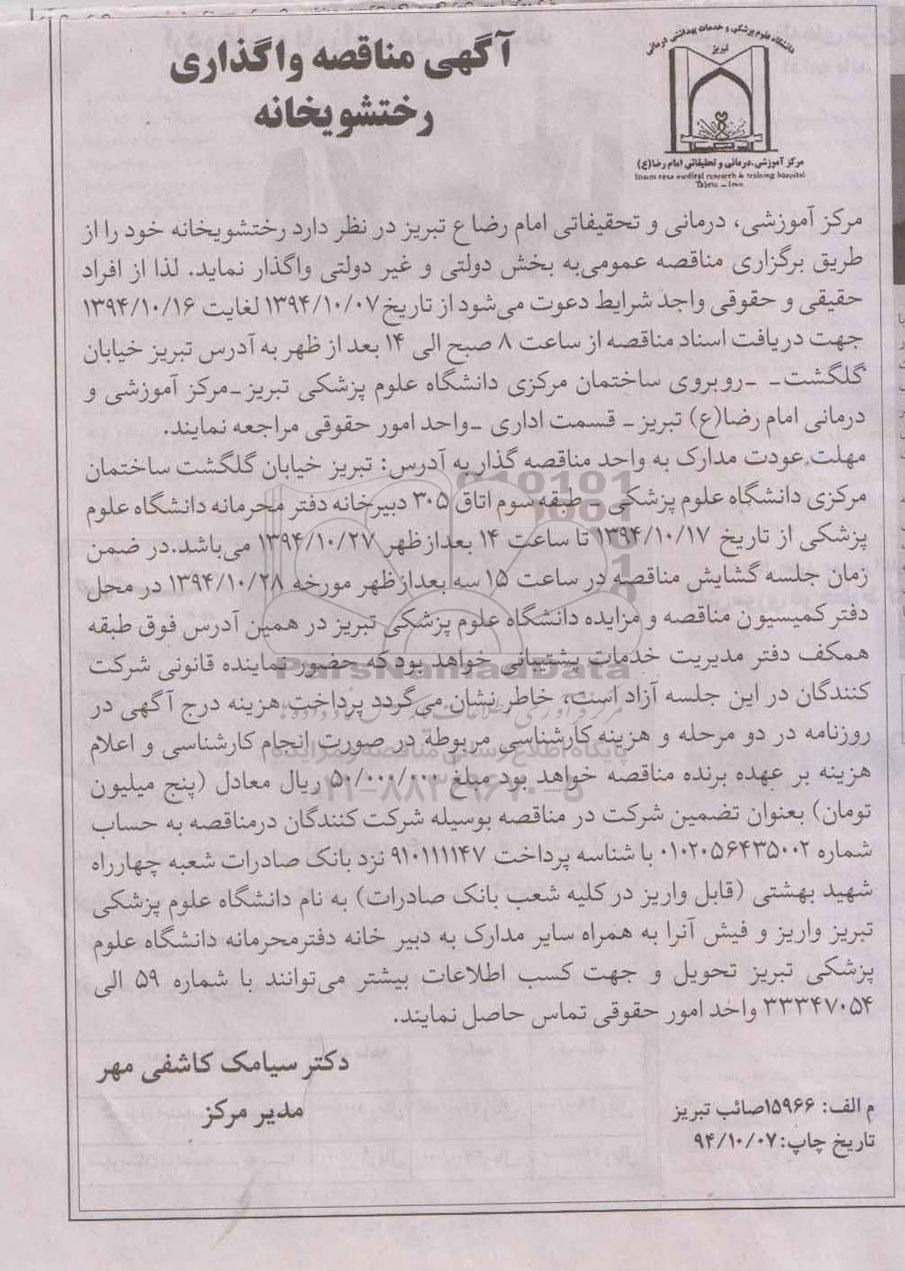 آگهی مناقصه واگذاری
رختشویخانه
دانشگاه علوم پزشکی و خدمات بهداشتی درمانی
تبریز
مرکز آموزشی،درمانی و تحقیقاتی امام رضا(ع)
Imam reza medical research & training hospital
Tabriz _ Iran
مرکز آموزشی، درمانی و تحقیفاتی امام رضا ع تبریز در نظر دارد رختشویخانه خود را از
طریق برگزاری مناقصه عمومی‌به بخش دولتی و غیر دولتی واگذار نماید. لذا از افراد
حقیقی و حقوقی واجد شرایط دعوت می‌شود از تاریخ ۱۳۹۴/۱۰/۰۷ لغایت ۱۳۹۴/۱۰/۱۶
جهت دریافت اسناد مناقصه از ساعت ۸ صبح الی ۱۴ بعد از ظهر به آدرس تبریز خیابان
گلگشت_ _روبروی ساختمان مرکزی دانشگاه علوم پزشکی تبریز_مرکز آموزشی و
درمانی امام رضا(ع) تبریز_ قسمت اداری _واحد امور حقوقی مراجعه نمایند.
مهلت عودت مدارک به واحد مناقصه گذار به آدرس: تبریز خیابان گلگشت ساختمان
مرکزی دانشگاه علوم پزشکی _ طبقه سوم اتاق ۳۰۵ دبیرخانه دفتر محرمانه دانشگاه علوم
پزشکی از تاریخ ۱۳۹۴/۱۰/۱۷ تا ساعت ۱۴ بعدازظهر ۱۳۹۴/۱۰/۲۷ می‌باشد.در ضمن
زمان جلسه گشایش مناقصه در ساعت ۱۵ سه بعدازظهر مورخه ۱۳۹۴/۱۰/۲۸ در محل
دفتر کمیسیون مناقصه و مزایده دانشگاه علوم پزشکی تبریز در همین آدرس فوق طبقه
همکف دفتر مدیریت خدمات پشتیبانی خواهد بود که حضور نماینده قانونی شرکت
کنندگان در این جلسه آزاد است، خاطر نشان می‌گردد پرداخت هزینه درج آگهی در
روزنامه در دو مرحله و هزینه کارشناسی مربوطه در صورت انجام کارشناسی و اعلام
هزینه بر عهده برنده مناقصه خواهد بود مبلغ ۵۰/۰۰۰/۰۰۰ ریال معادل (پنج میلیون
تومان) بعنوان تضمین شرکت در مناقصه بوسیله شرکت کنندگان درمناقصه به حساب
شماره ۰۱۰۲۰۵۶۴۳۵۰۰۲ با شناسه پرداخت ۹۱۰۱۱۱۱۴۷ نزد بانک صادرات شعبه چهارراه
شهید بهشتی (قابل واریز در کلیه شعب بانک صادرات) به نام دانشگاه علوم پزشکی
تبریز واریز و فیش آنرا به همراه سایر مدارک به دبیر خانه دفترمحرمانه دانشگاه علوم
پزشکی تبریز تحویل و جهت کسب اطلاعات بیشتر می‌توانند با شماره ۵۹ الی
۳۳۳۴۷۰۵۴ واحد امور حقوقی تماس حاصل نمایند.
دکتر سیامک کاشفی مهر
مدیر مرکز
م الف: ۱۵۹۶۶صائب تبریز
تاریخ چاپ:۹۴/۱۰/۰۷
ParsNamadData
پایگاه اطلاع رسانی مناقصه و مزایده
۰۲۱-۸۸۳۴۹۶۷۰-۵